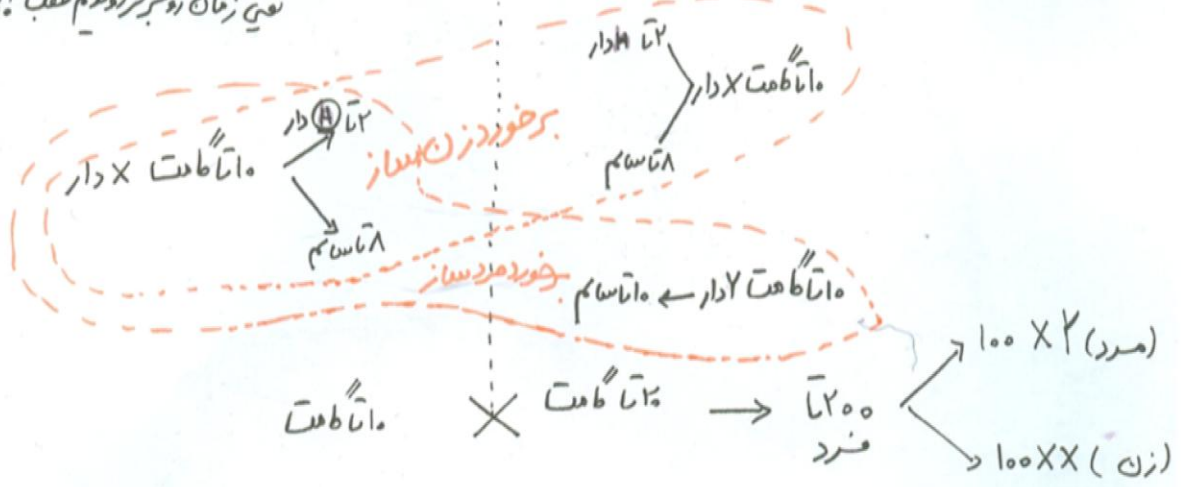 یعنی زمان رو
۲تا H دار
۱۰تا گامت X دار
۸تا سالم
برخورد زن ساز
۲تا H دار
۱۰تا گامت X دار
۸تا سالم
برخورد مرد ساز
۱۰تا گامت Y دار ← ۱۰تا سالم
۱۰تا گامت × ۲۰تا گامت → ۲۰۰تا فرد
۱۰۰ XY (مرد)
۱۰۰ XX (زن)